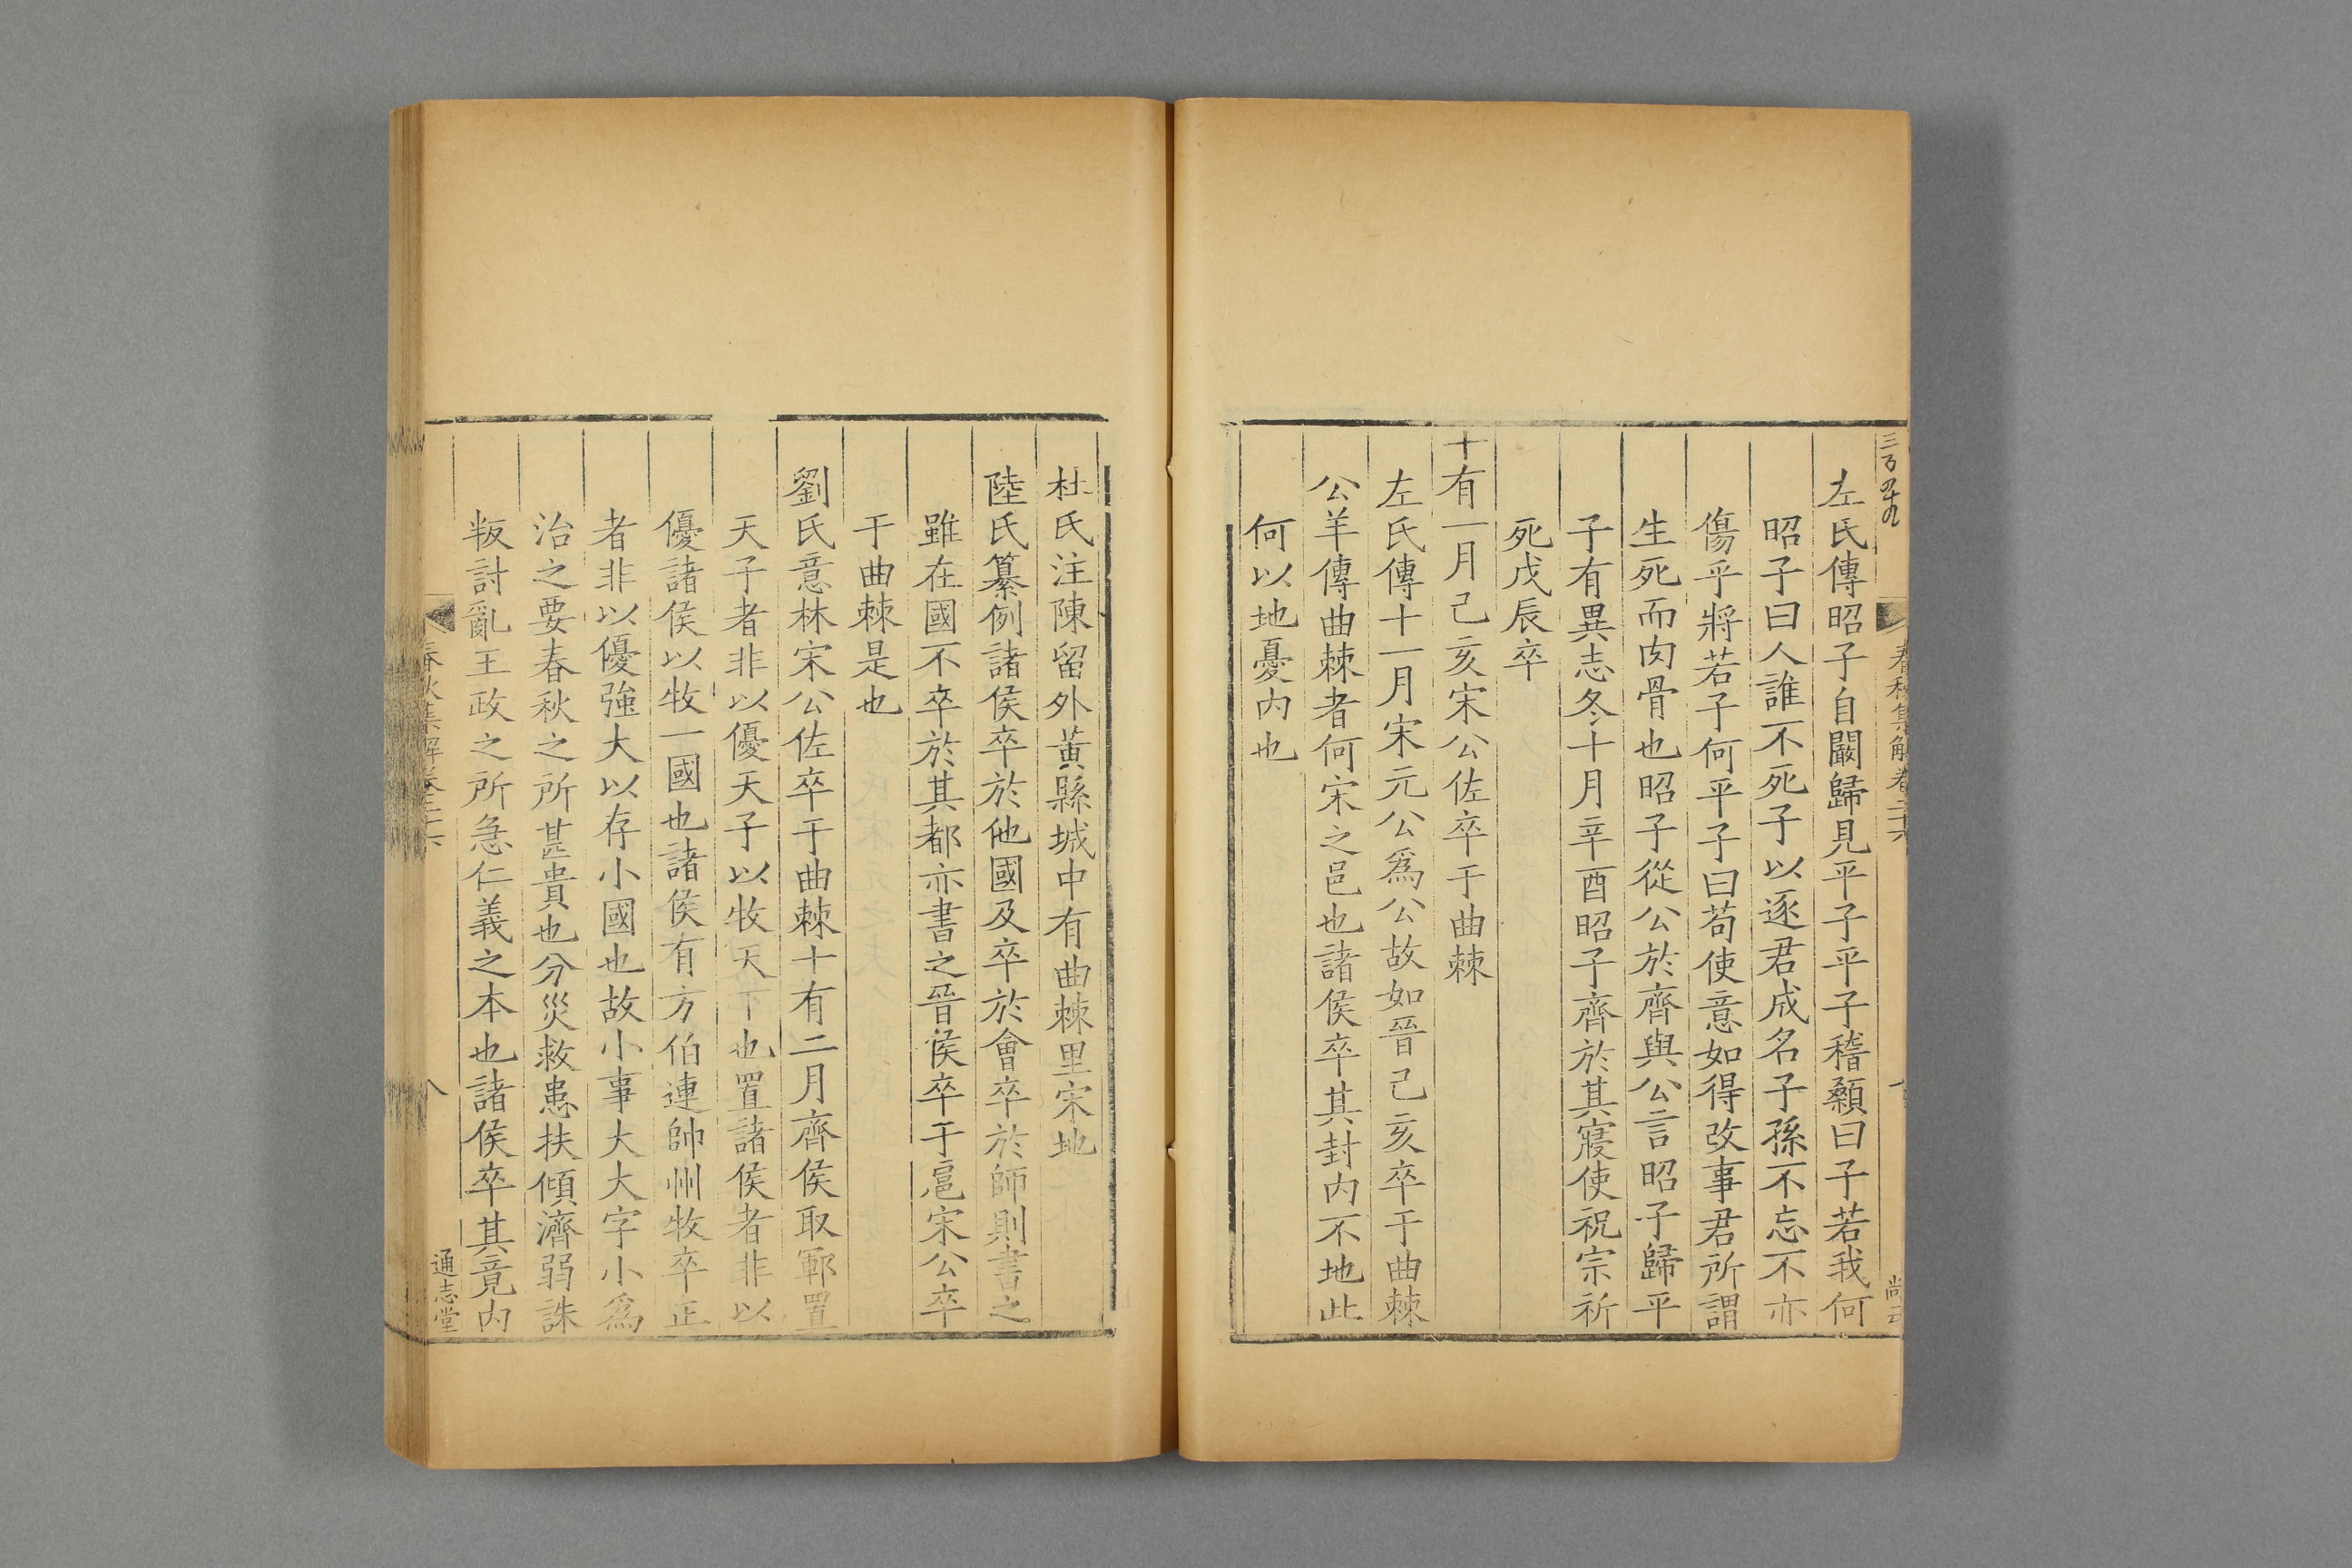 春秋集解卷二十六
左氏傳昭子自闞歸見平子平子稽顙曰子若我何
昭子曰人誰不死子以逐君成名子孫不忘不亦
傷乎將若子何平子曰苟使意如得改事君所謂
生死而肉骨也昭子從公於齊與公言昭子歸平
子有異志冬十月辛酉昭子齊於其寢使祝宗祈
死戊辰卒
十有一月己亥宋公佐卒于曲棘
左氏傳十一月宋元公爲公故如晉己亥卒于曲棘
公羊傳曲棘者何宋之邑也諸侯卒其封内不地此
何以地憂内也
杜氏注陳留外黃縣城中有曲棘里宋地
陸氏纂例諸侯卒於他國及卒於會卒於師則書之
雖在國不卒於其都亦書之晉侯卒于扈宋公卒
于曲棘是也
劉氏意林宋公佐卒于曲棘十有二月齊侯取鄆置
天子者非以優天子以牧天下也置諸侯者非以
優諸侯以牧一國也諸侯有方伯連帥州牧卒正
者非以優強大以存小國也故小事大大字小爲
治之要春秋之所甚貴也分災救患扶傾濟弱誅
叛討亂王政之所急仁義之本也諸侯卒其竟内
春秋集解卷二十六
八
通志堂